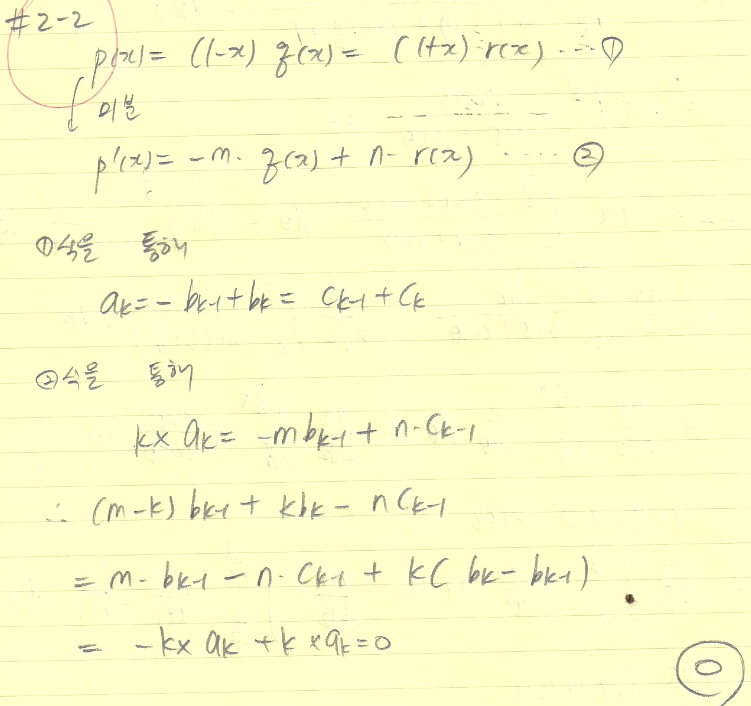 #2-2
p(x) = (1-x) q(x) = (1+x) r(x) ... ①
미분
p'(x) = -m· q(x) + n· r(x) ..... ②
①식을 통해
aₖ = - bₖ₋₁ + bₖ = cₖ₋₁ + cₖ
②식을 통해
k× aₖ = -m bₖ₋₁ + n·cₖ₋₁
∴ (m-k) bₖ₋₁ + kbₖ - n cₖ₋₁
= m· bₖ₋₁ - n· cₖ₋₁ + k( bₖ - bₖ₋₁)
= -k× aₖ + k ×aₖ = 0
0